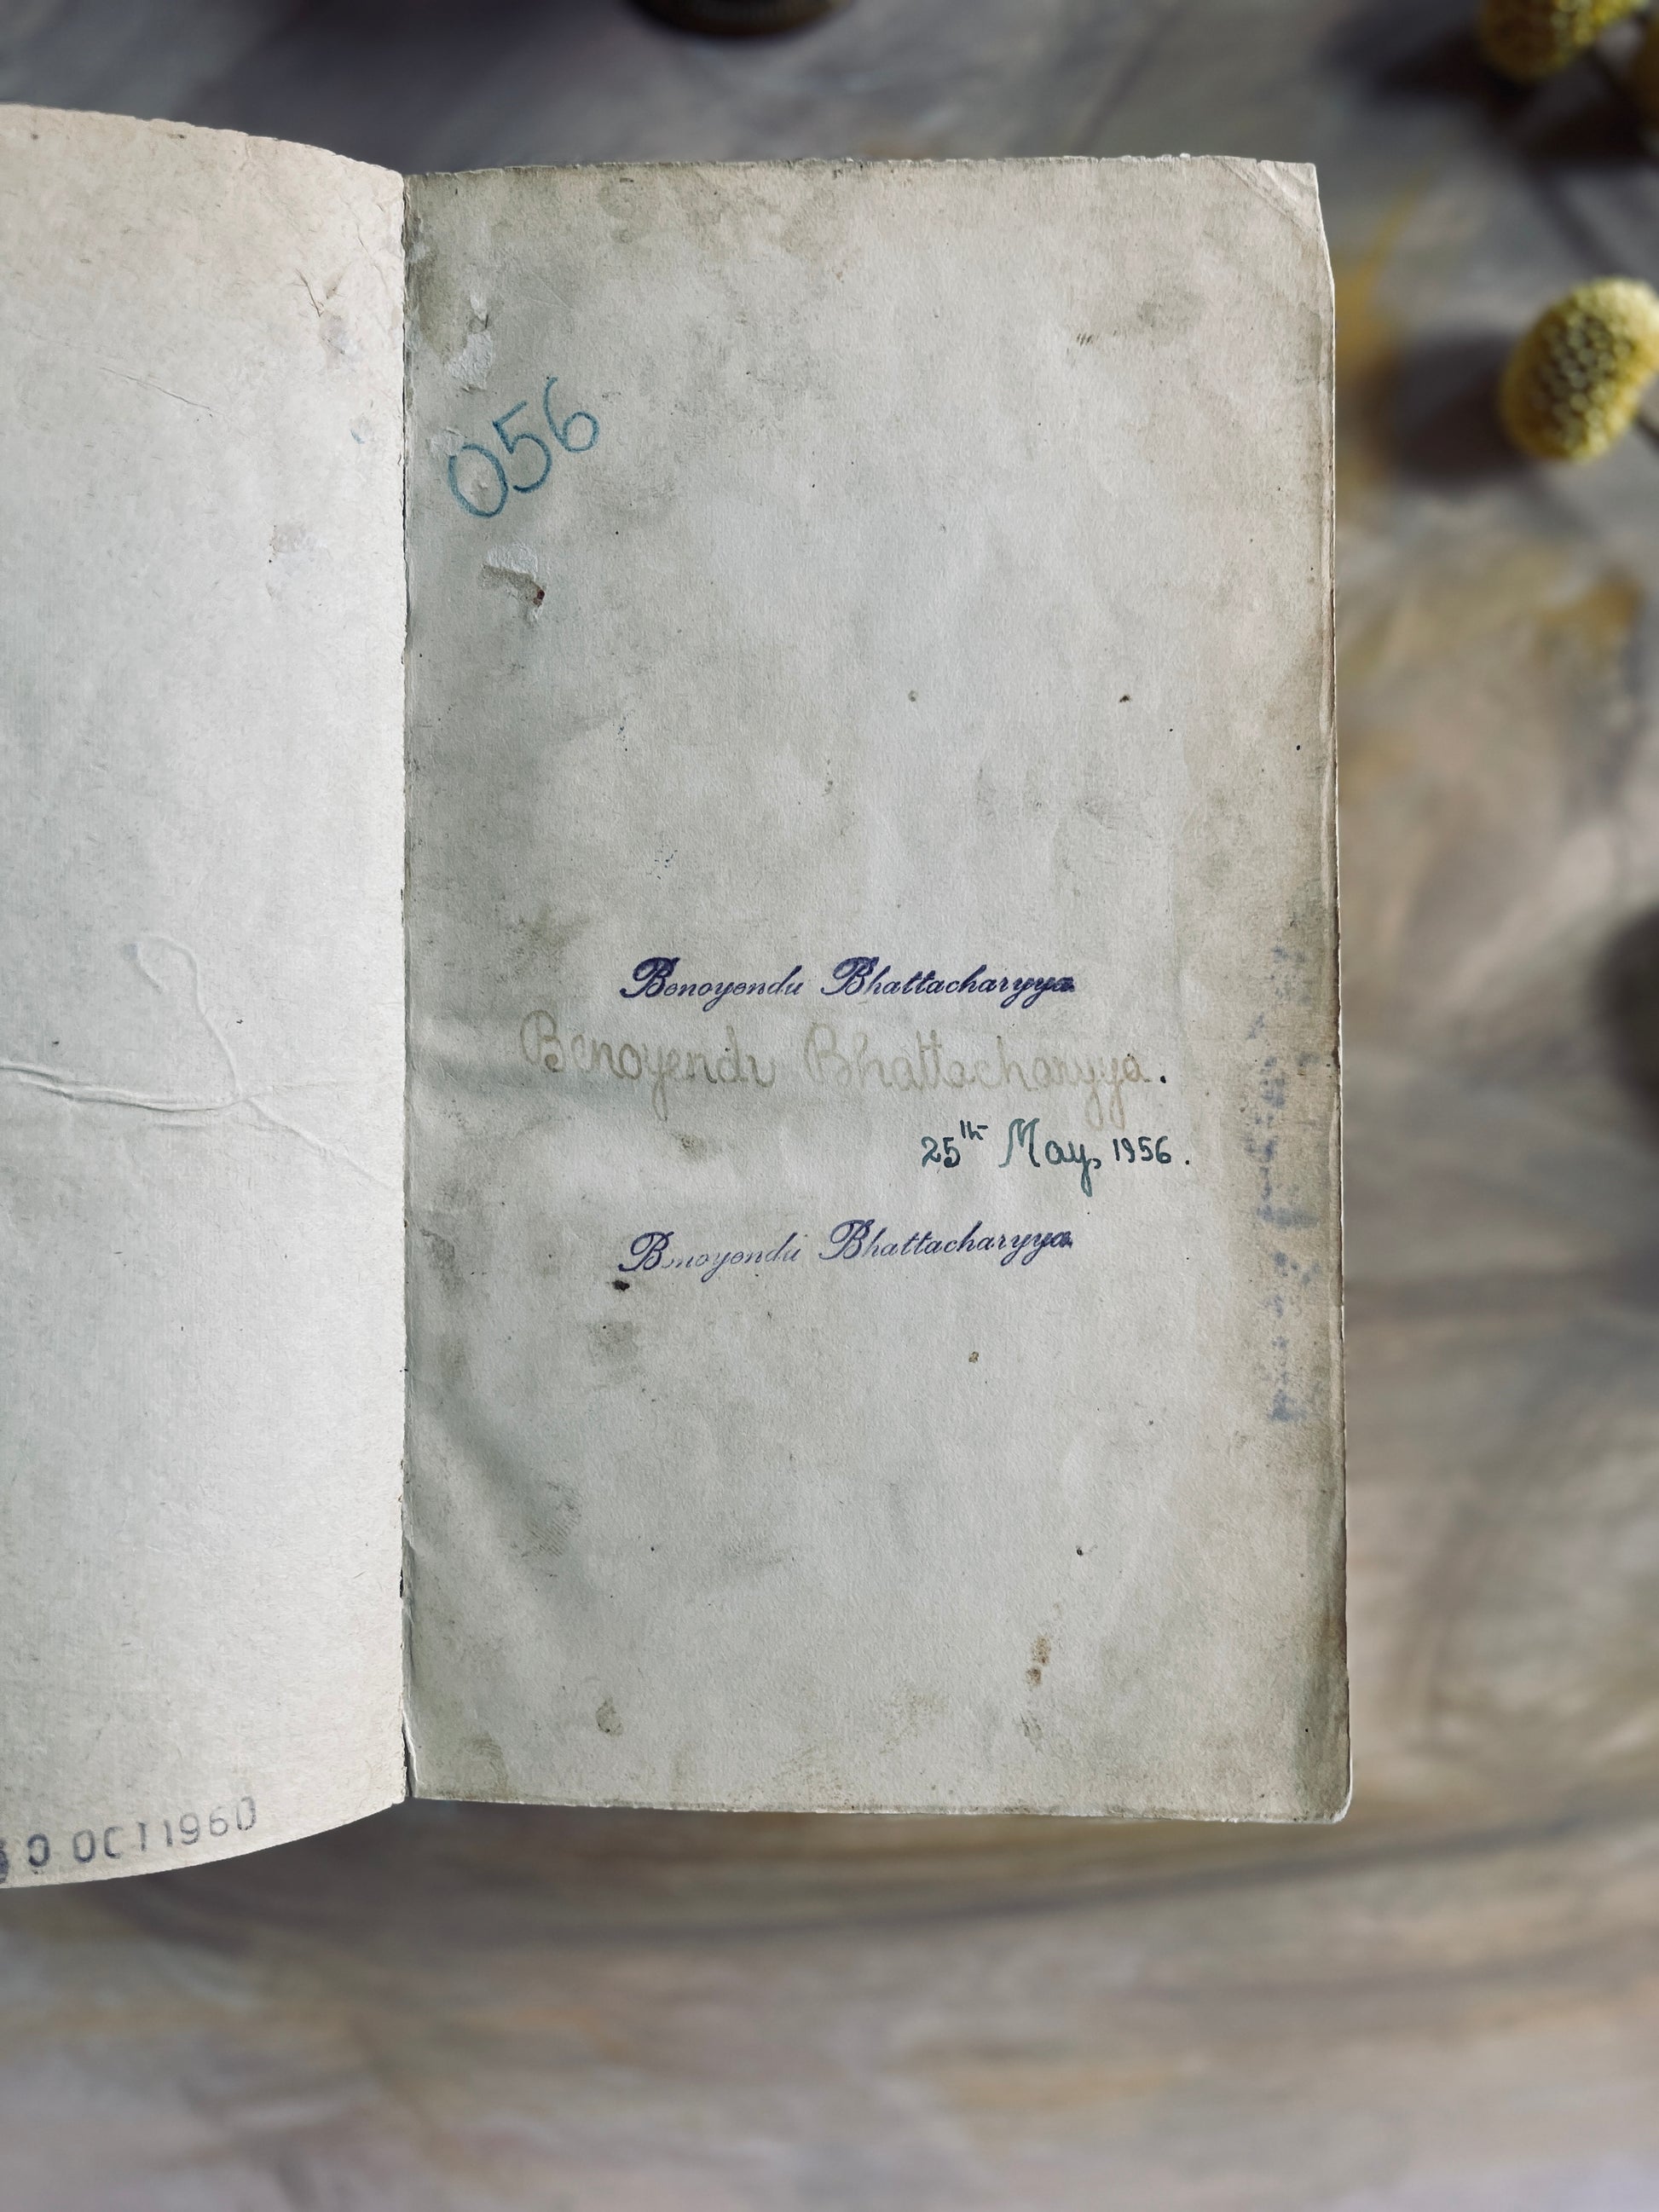 0 OCT 1960
056
Benoyendu Bhattacharyya
Benoyendu Bhattacharyya.
25th May, 1956.
Benoyendu Bhattacharyya